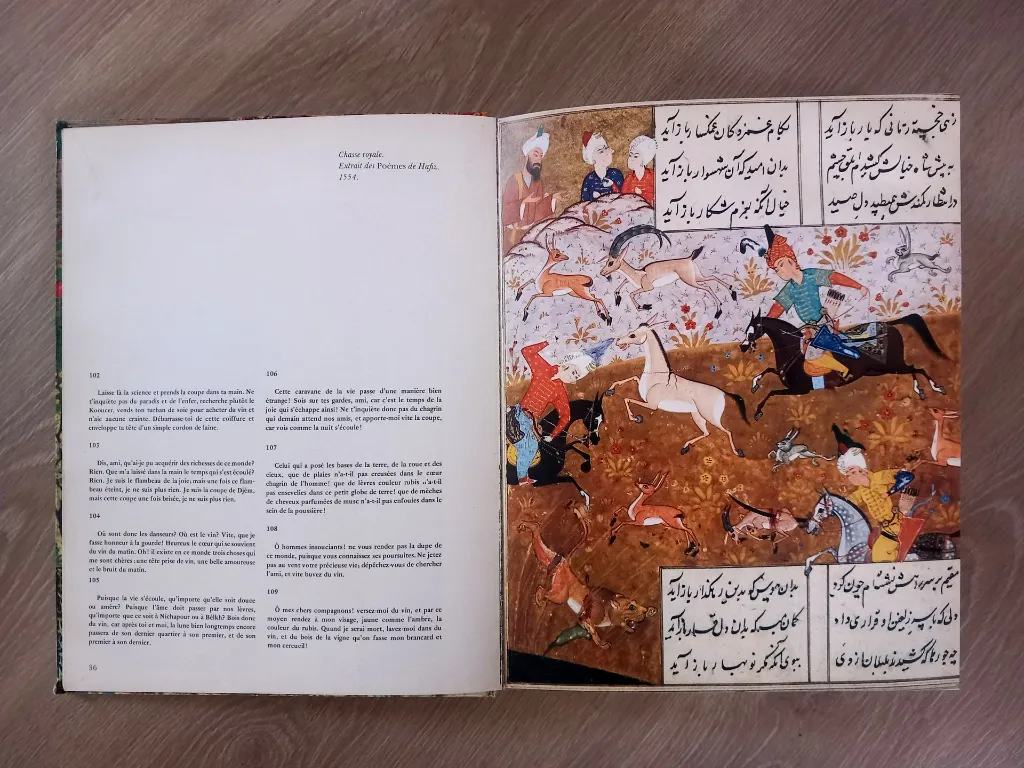 Chasse royale.
Extrait des Poèmes de Hafiz.
1554.
102
Laisse là la science et prends la coupe dans ta main. Ne
t'inquiète pas du paradis et de l'enfer, recherche plutôt le
Kooucer, vends ton turban de soie pour acheter du vin et
n'aie aucune crainte. Débarrasse-toi de cette coiffure et
enveloppe ta tête d'un simple cordon de laine.
103
Dis, ami, qu'ai-je pu acquérir des richesses de ce monde?
Rien. Que m'a laissé dans la main le temps qui s'est écoulé?
Rien. Je suis le flambeau de la joie, mais une fois ce flam-
beau éteint, je ne suis plus rien. Je suis la coupe de Djèm,
mais cette coupe une fois brisée, je ne suis plus rien.
104
Où sont donc les danseurs? Où est le vin? Vite, que je
fasse honneur à la gourde! Heureux le cœur qui se souvient
du vin du matin. Oh! il existe en ce monde trois choses qui
me sont chères: une tête prise de vin, une belle amoureuse
et le bruit du matin.
105
Puisque la vie s'écoule, qu'importe qu'elle soit douce
ou amère? Puisque l'âme doit passer par nos lèvres,
qu'importe que ce soit à Nichapour ou à Bèlkh? Bois donc
du vin, car après toi et moi, la lune bien longtemps encore
passera de son dernier quartier à son premier, et de son
premier à son dernier.
36
106
Cette caravane de la vie passe d'une manière bien
étrange! Sois sur tes gardes, ami, car c'est le temps de la
joie qui s'échappe ainsi! Ne t'inquiète donc pas du chagrin
qui demain attend nos amis, et apporte-moi vite la coupe,
car vois comme la nuit s'écoule!
107
Celui qui a posé les bases de la terre, de la roue et des
cieux, que de plaies n'a-t-il pas creusées dans le cœur
chagrin de l'homme! que de lèvres couleur rubis n'a-t-il
pas ensevelies dans ce petit globe de terre! que de mèches
de cheveux parfumées de musc n'a-t-il pas enfouies dans le
sein de la poussière!
108
Ô hommes insouciants! ne vous rendez pas la dupe de
ce monde, puisque vous connaissez ses poursuites. Ne jetez
pas au vent votre précieuse vie; dépêchez-vous de chercher
l'ami, et vite buvez du vin.
109
Ô mes chers compagnons! versez-moi du vin, et par ce
moyen rendez à mon visage, jaune comme l'ambre, la
couleur du rubis. Quand je serai mort, lavez-moi dans du
vin, et du bois de la vigne qu'on fasse mon brancard et
mon cercueil!
زهی خجسته زمانی که یار باز آید
بکام غمزدگان غمکسار باز آید
به پیش شاه خیالش کشیدم ابلق چشم
بدان امید که آن شهسوار باز آید
در انتظار خدنکش همی طپد دل صید
خیال آنکه بعزم شکار باز آید
مقیم بر سر راهش نشسته ام چون کرد
بدان هوس که بدین رهکذار باز آید
دلی که با سر زلفین او قراری داد
کمان مبر که بدان دل قرار باز آید
چه جورها که کشیدند بلبلان از دی
ببوی آنکه دکر نوبهار باز آید